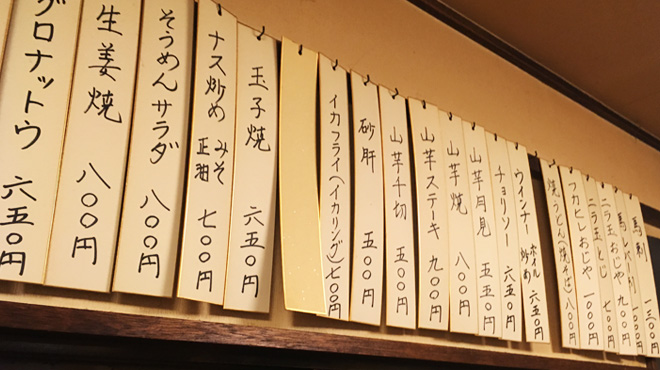 馬刺 一三〇〇円
馬レバ刺 一〇〇〇円
ニラ玉おじや 九〇〇円
ニラ玉とじ 七〇〇円
フカヒレおじや 一〇〇〇円
焼うどん(焼そば) 八〇〇円
ウインナー ボイル 炒め 六五〇円
チョリソー 六五〇円
山芋月見 五五〇円
山芋焼 八〇〇円
山芋ステーキ 九〇〇円
山芋千切 五〇〇円
砂肝 五〇〇円
イカフライ(イカリング)七〇〇円
玉子焼 六五〇円
ナス炒め みそ 正油 七〇〇円
そうめんサラダ 八〇〇円
生姜焼 八〇〇円
グロナットウ 六五〇円